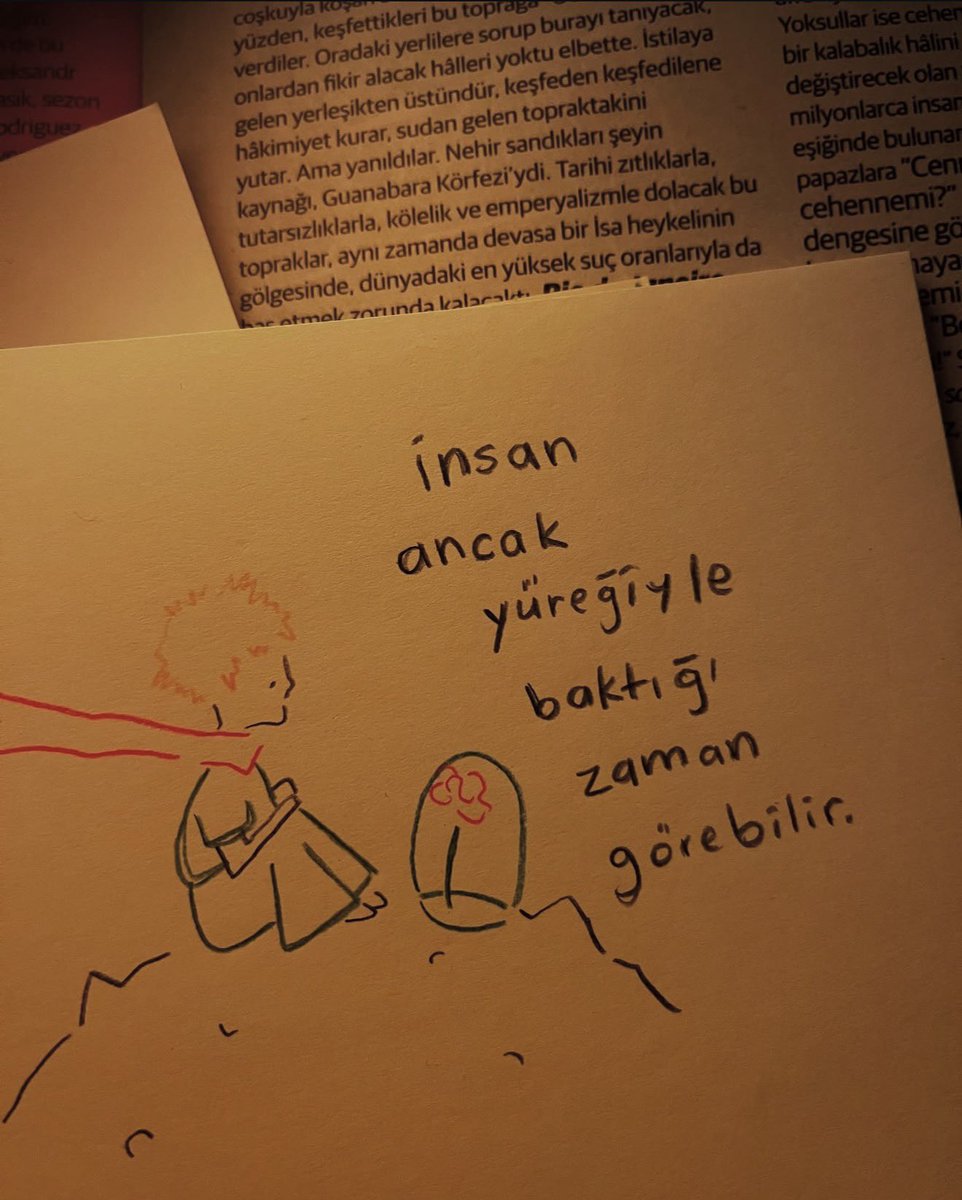 coşkuyla
yüzden, keşfettikleri bu toprağa
verdiler. Oradaki yerlilere sorup burayı tanıyacak,
onlardan fikir alacak hâlleri yoktu elbette. İstilaya
gelen yerleşikten üstündür, keşfeden keşfedilene
hâkimiyet kurar, sudan gelen topraktakini
yutar. Ama yanıldılar. Nehir sandıkları şeyin
kaynağı, Guanabara Körfezi'ydi. Tarihi zıtlıklarla,
tutarsızlıklarla, kölelik ve emperyalizmle dolacak bu
topraklar, aynı zamanda devasa bir İsa heykelinin
gölgesinde, dünyadaki en yüksek suç oranlarıyla da
etmek zorunda kalacaktı.
Yoksullar ise
bir kalabalık hâlini
değiştirecek olan
milyonlarca
eşiğinde
papazlara
cehennemi?"
dengesine
sezon
insan
ancak
yüreğiyle
baktığı
zaman
görebilir.